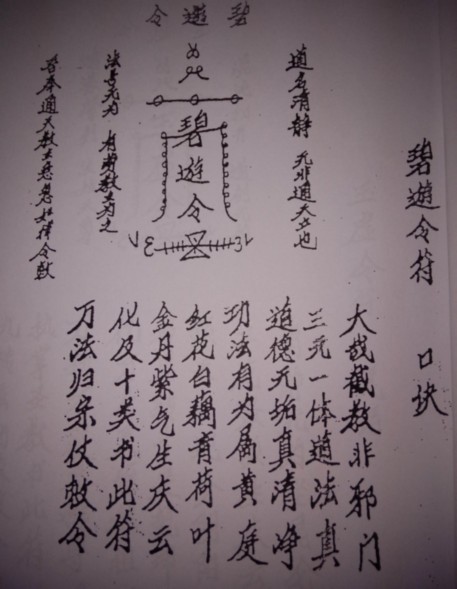 碧遊令
碧遊令符 口诀
道名清静 无非通天
碧遊令
法号无为 教主为之
吾奉通天教主急急如律令敕
大哉截教非邪门
三元一体道法真
道德无垢真清净
功法有为属黄庭
红花白藕青荷叶
金丹紫气生庆云
化及十类书此符
万法归宗仗敕令